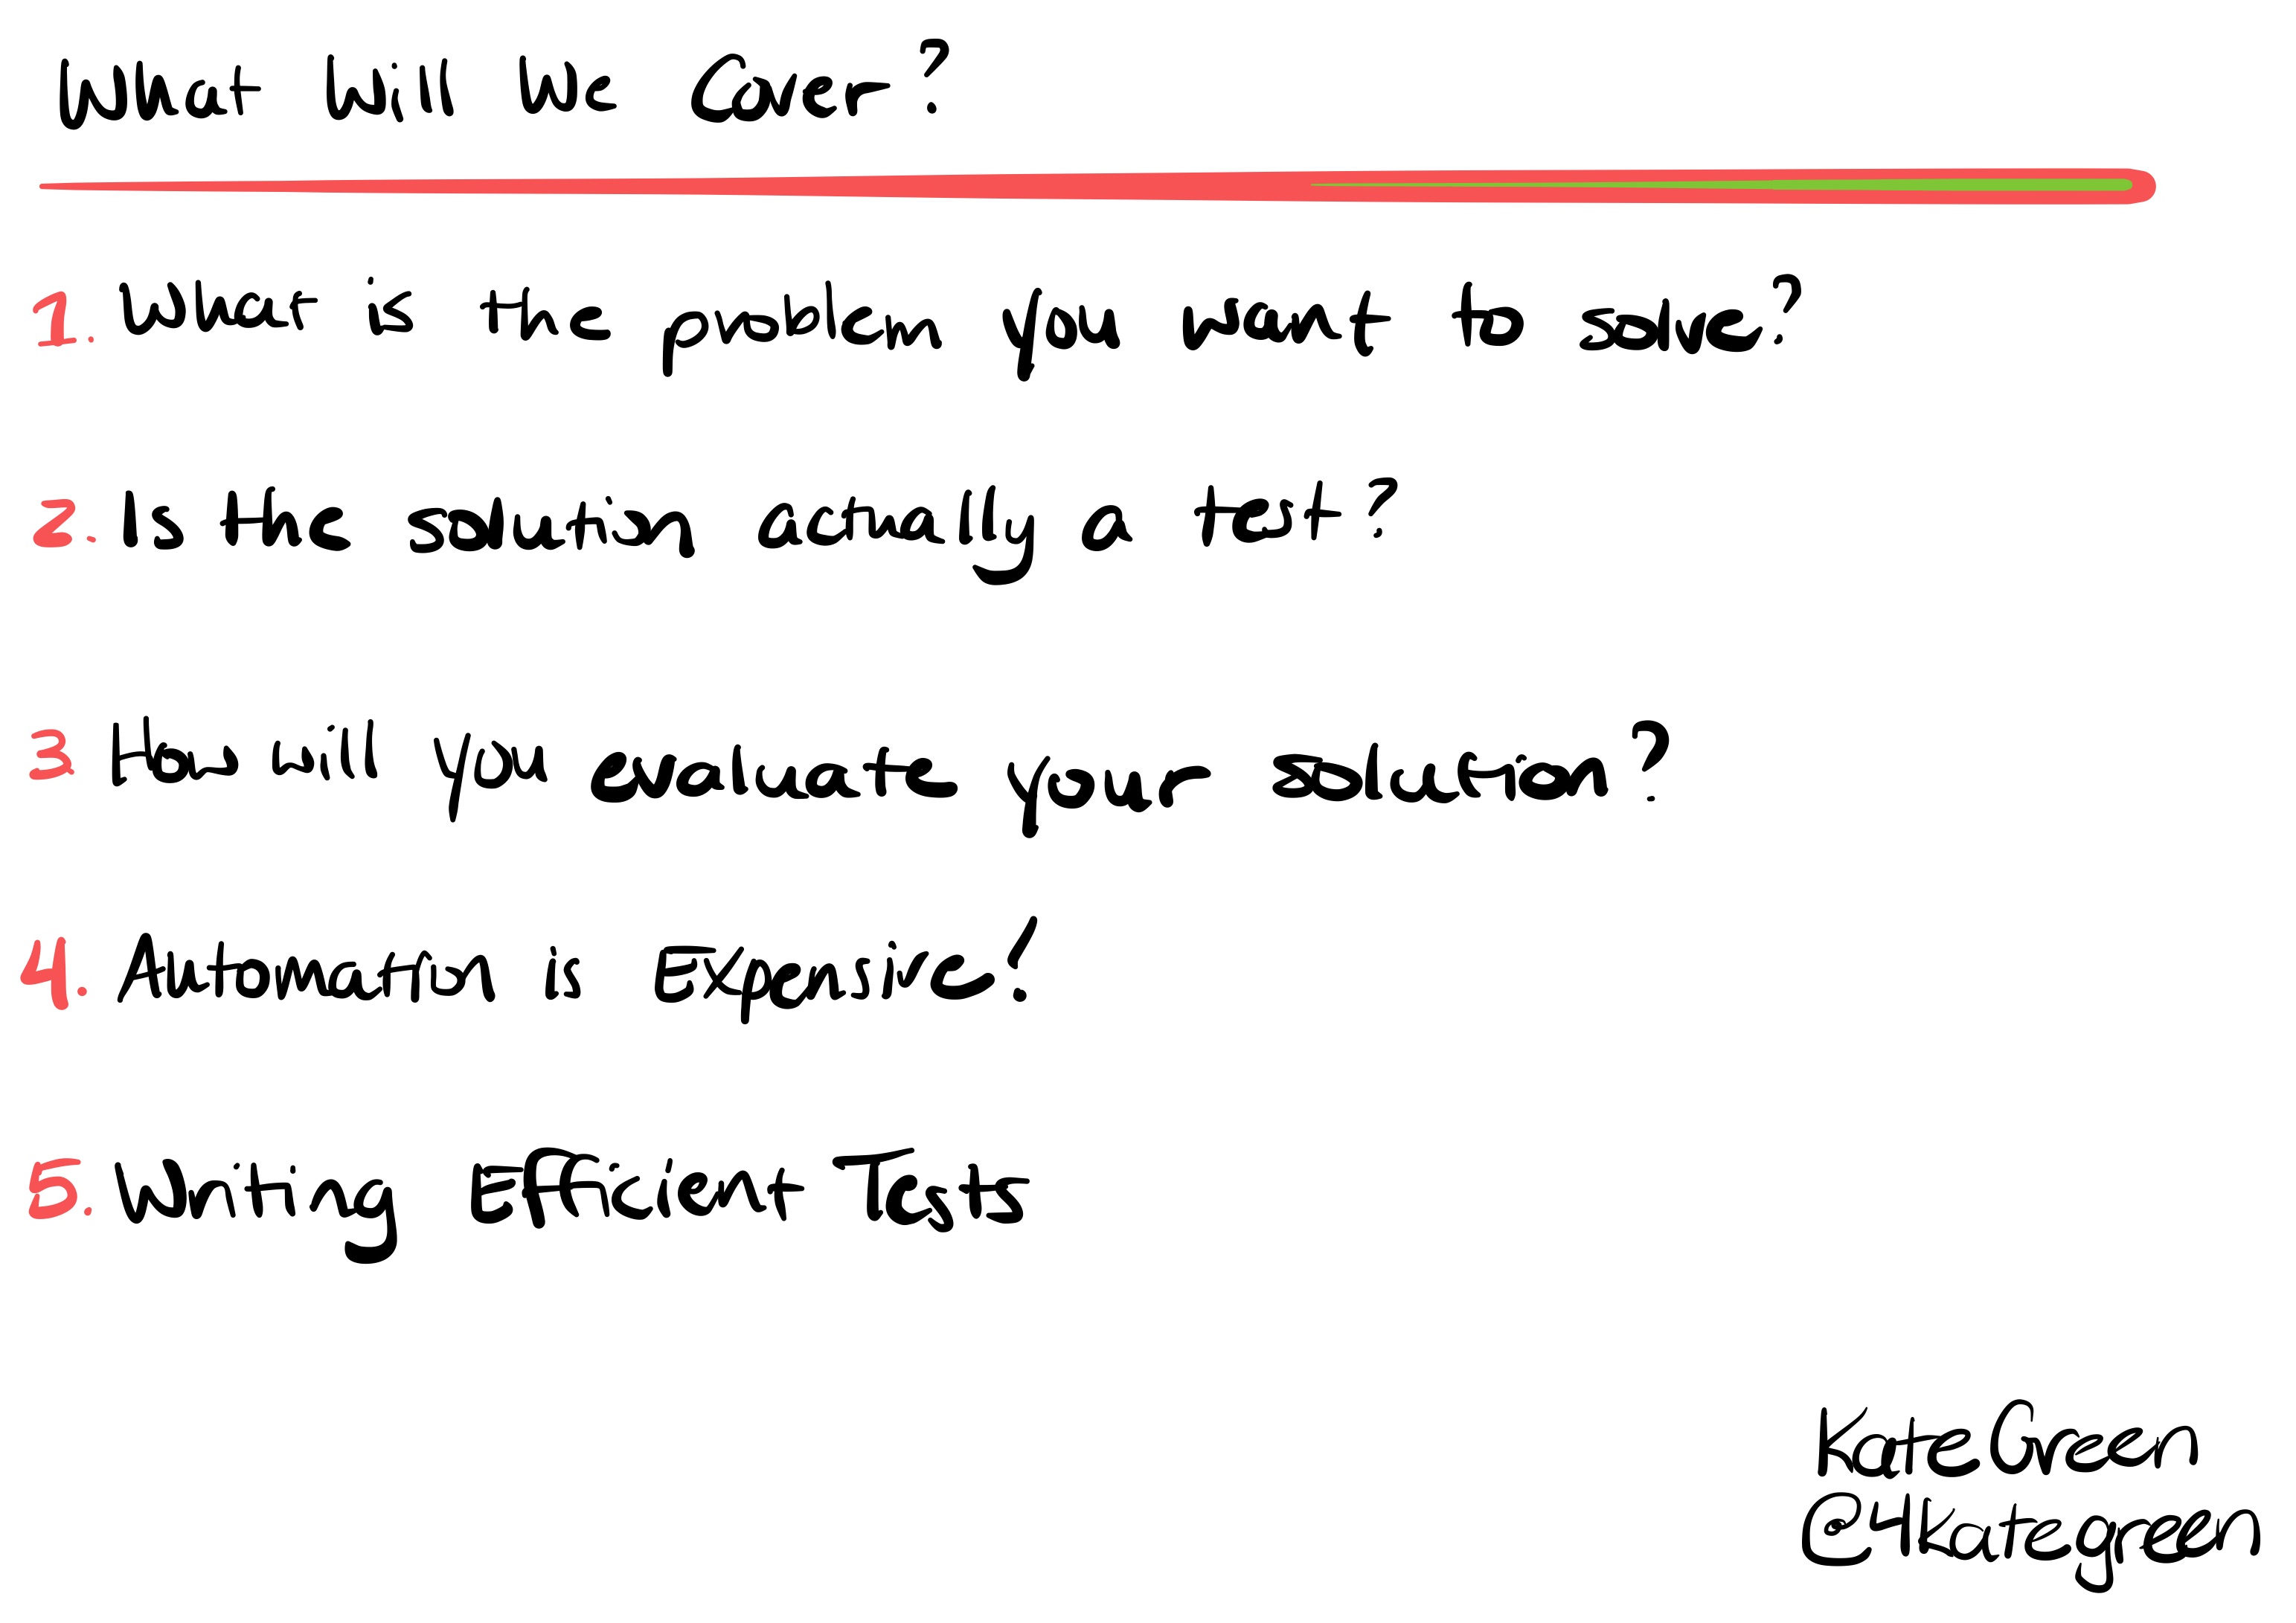 What Will We Cover?
1. What is the problem you want to solve?
2. Is the solution actually a test?
3 How will you evaluate your solution?
4. Automation is Expensive!
5. Writing Efficient Tests
Kate Green
@4Kategreen